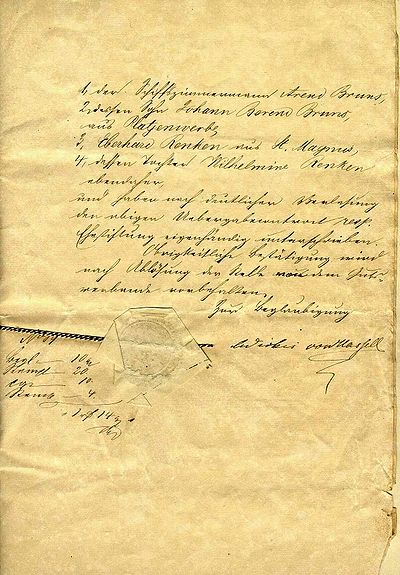 1, der Schiffszimmermann Arend Bruns,
2, dessen Sohn Johann Berend Bruns,
aus Platjenwerbe,
3, Eberhard Renken aus St. Magnus,
4, dessen Tochter Wilhelmine Renken
ebendaher,
und haben nach deutlicher Verlesung
den obigen Uebergabecontract resp.
Ehestiftung eigenhändig unterschrieben.
Obrigkeitliche Bestätigung wird
nach Ablösung der Stelle von dem Guts-
verbande vorbehalten.
Zur Beglaubigung
von Hassell
10
20.
10.
4.